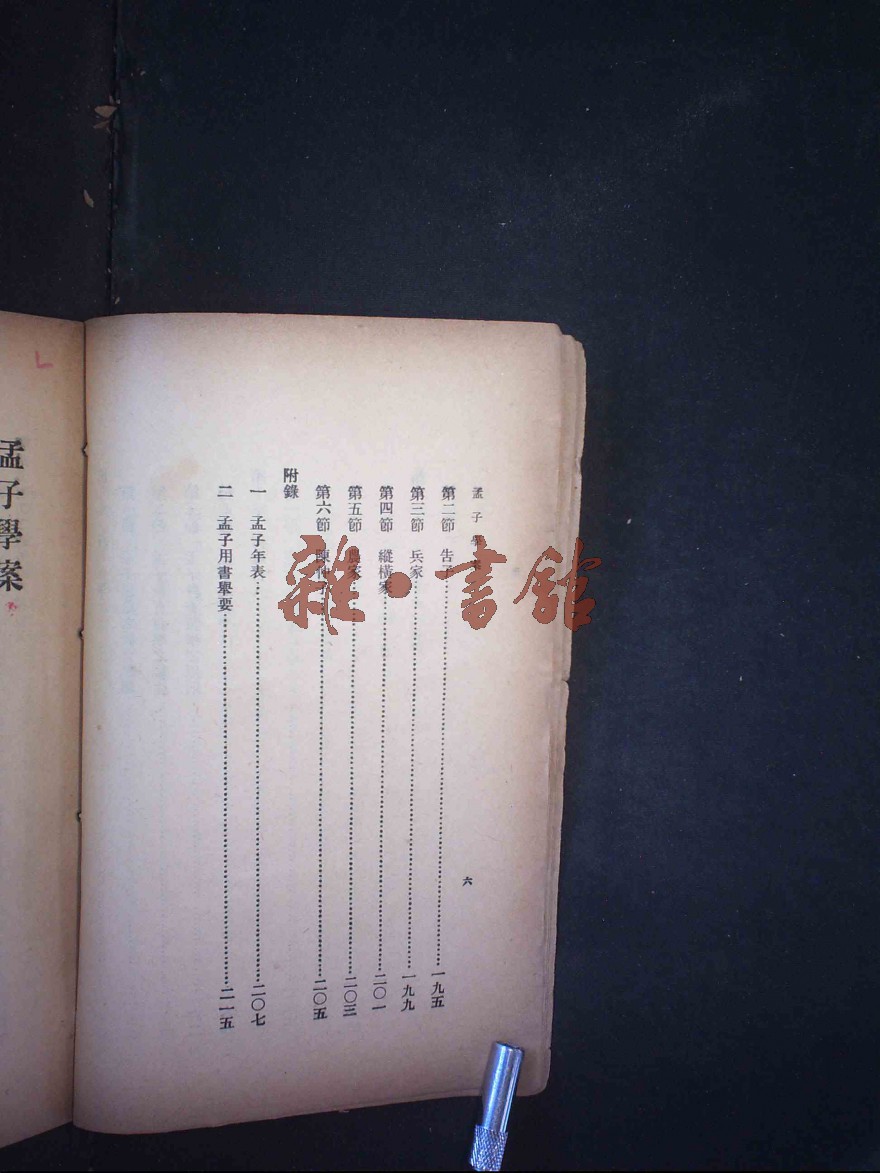 孟子學
第二節　告子……一九五
第三節　兵家……一九九
第四節　縱橫家……二〇一
第五節　農家……二〇三
第六節　陳仲子……二〇五
附錄
一　孟子年表……二〇七
二　孟子用書舉要……二一五
六
孟子學案
雜·書館